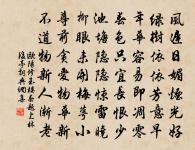 風遲日媚煙光好
綠樹依依芳意早
年華容易即凋零
春色只宜長恨少
池塘隱隱驚雷曉
柳眼未開梅萼小
尊前貪愛物華新
不道物新人漸老
歐陽修玉樓春題上林
後亭詞典網集